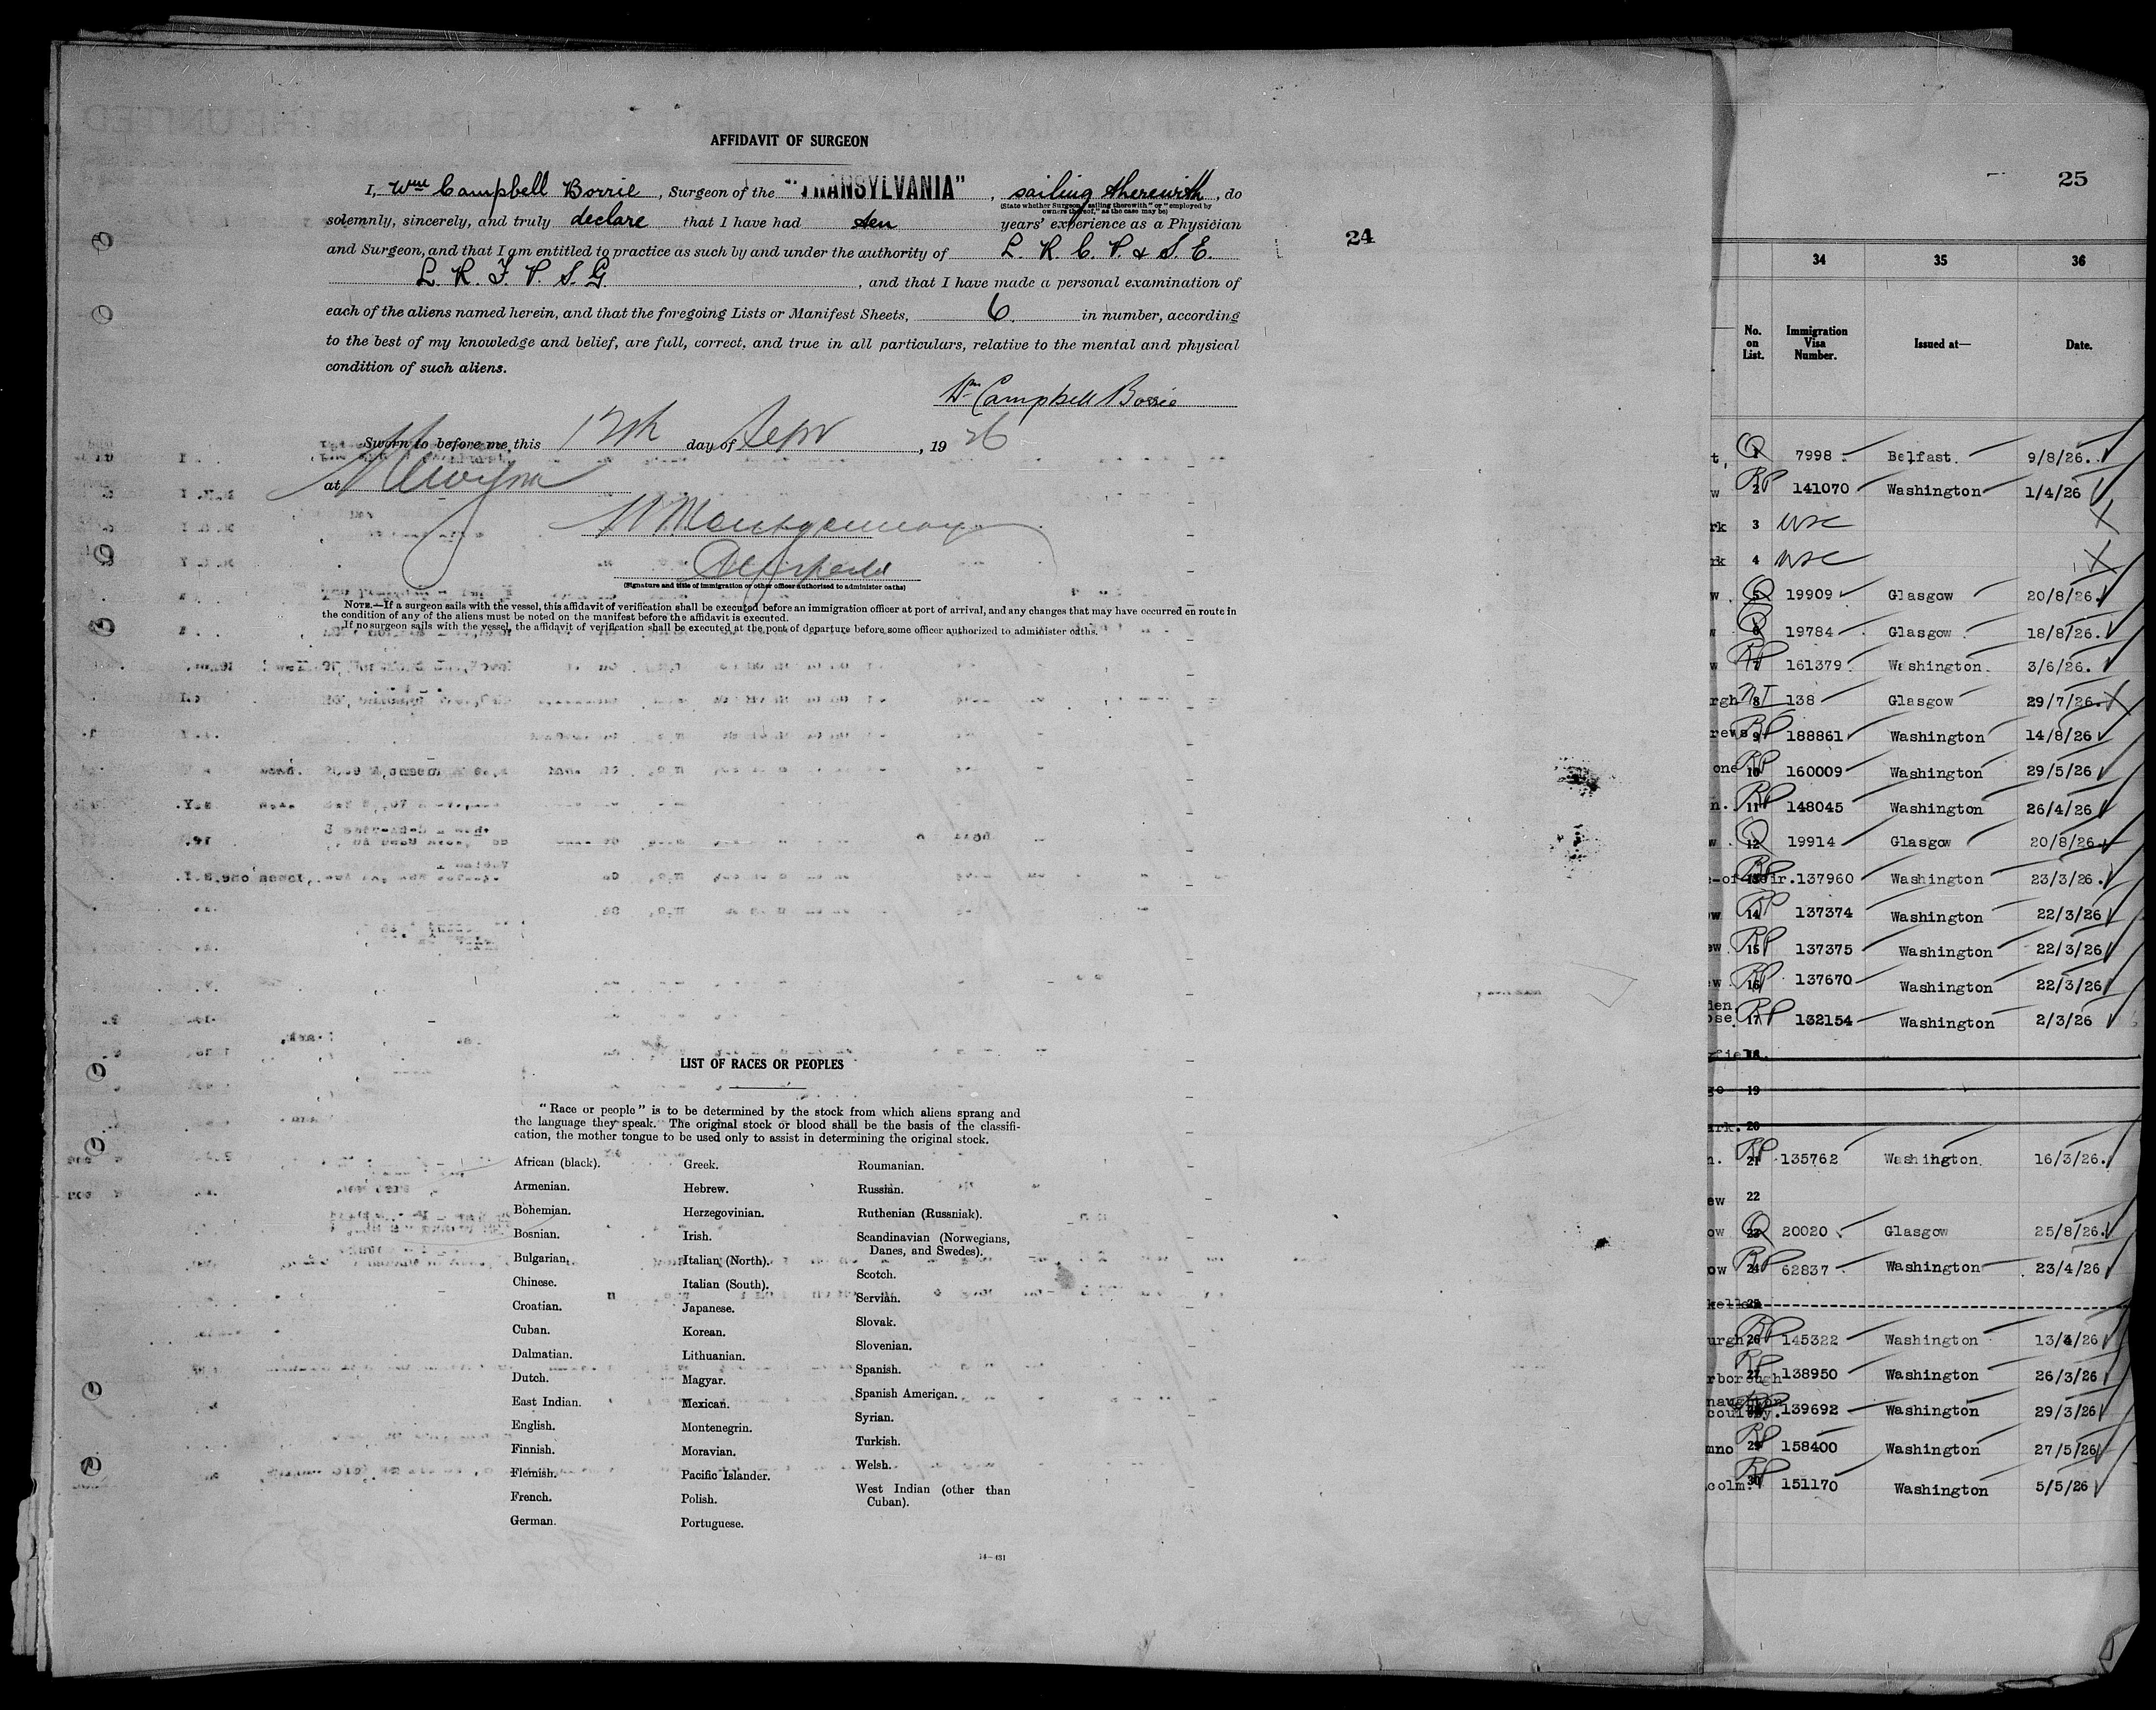 AFFIDAVIT OF SURGEON
I, Wm Campbell Borrie, Surgeon of the "TRANSYLVANIA", sailing therewith, do
(State whether Surgeon "sailing therewith" or "employed by
owners thereof," as the case may be)
solemnly, sincerely, and truly declare that I have had ten years' experience as a Physician
and Surgeon, and that I am entitled to practice as such by and under the authority of L. R. C. P. & S. E.
L. R. F. P. S. G., and that I have made a personal examination of
each of the aliens named herein, and that the foregoing Lists or Manifest Sheets, 6. in number, according
to the best of my knowledge and belief, are full, correct, and true in all particulars, relative to the mental and physical
condition of such aliens.
Wm Campbell Borrie
Sworn to before me this 12th day of Sept, 1926
at
(Signature and title of immigration or other officer authorised to administer oaths)
NOTE.—If a surgeon sails with the vessel, this affidavit of verification shall be executed before an immigration officer at port of arrival, and any changes that may have occurred en route in
the condition of any of the aliens must be noted on the manifest before the affidavit is executed.
If no surgeon sails with the vessel, the affidavit of verification shall be executed at the port of departure before some officer authorized to administer oaths.
24
LIST OF RACES OR PEOPLES
"Race or people" is to be determined by the stock from which aliens sprang and
the language they speak. The original stock or blood shall be the basis of the classifi-
cation, the mother tongue to be used only to assist in determining the original stock.
African (black).
Armenian.
Bohemian.
Bosnian.
Bulgarian.
Chinese.
Croatian.
Cuban.
Dalmatian.
Dutch.
East Indian.
English.
Finnish.
Flemish.
French.
German.
Greek.
Hebrew.
Herzegovinian.
Irish.
Italian (North).
Italian (South).
Japanese.
Korean.
Lithuanian.
Magyar.
Mexican.
Montenegrin.
Moravian.
Pacific Islander.
Polish.
Portuguese.
Roumanian.
Russian.
Ruthenian (Russniak).
Scandinavian (Norwegians,
Danes, and Swedes).
Scotch.
Servian.
Slovak.
Slovenian.
Spanish.
Spanish American.
Syrian.
Turkish.
Welsh.
West Indian (other than
Cuban).
14-431
25
34 35 36
No. on List. Immigration Visa Number. Issued at— Date.
t, Q 1 7998 Belfast. 9/8/26.
w RP 2 141070 Washington 1/4/26
rk 3 USC
rk 4 USC
w. Q 5 19909 Glasgow 20/8/26.
w Q 6 19784 Glasgow 18/8/26.
w RP 7 161379 Washington. 3/6/26.
rgh NI 8 138 Glasgow 29/7/26.
rews RP 9 188861 Washington 14/8/26
one RP 10 160009 Washington 29/5/26
n. RP 11 148045 Washington 26/4/26
w. Q 12 19914 Glasgow 20/8/26
RP 13 137960 Washington 23/3/26.
ow RP 14 137374 Washington 22/3/26
ew RP 15 137375 Washington 22/3/26
ew. RP 16 137670 Washington 22/3/26
den,
ose. RP 17 132154 Washington 2/3/26
18
go 19
ark. 20
n. RP 21 135762 Washington. 16/3/26.
ew 22
ow Q 23 20020 Glasgow 25/8/26.
ow RP 24 62837 Washington 23/4/26
25
urgh RP 26 145322 Washington 13/4/26
rborough RP 27 138950 Washington 26/3/26
naughton
coultry. 28 139692 Washington 29/3/26
mno RP 29 158400 Washington 27/5/26
colm. RP 30 151170 Washington 5/5/26